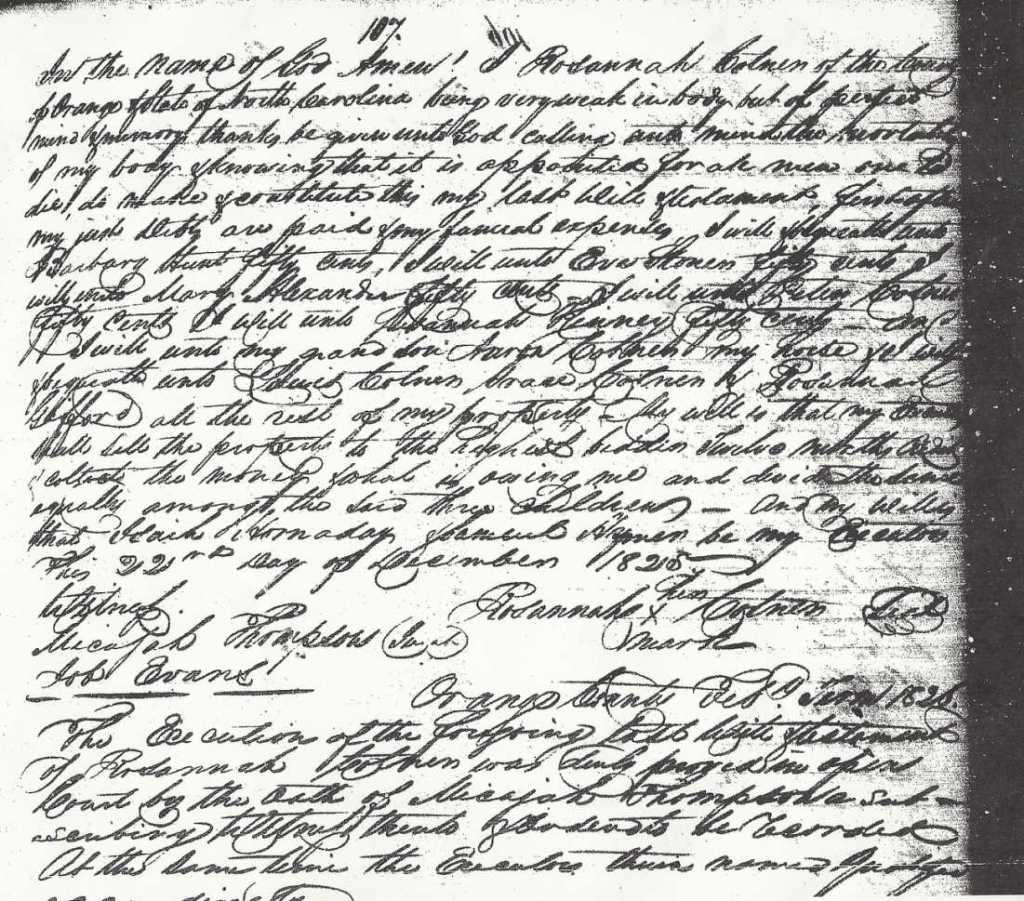 107.
In the name of God Amen! I Rosannah Colnen of the County
of Orange & State of North Carolina being very weak in body but of perfect
mind & memory thanks be given unto God calling unto mind the mortality
of my body & knowing that it is appointed for all men once to
die, do make & constitute this my last Will & testament, first after
my just Debts are paid & my funeral expenses, I will & bequeath unto
Barbary Hunt fifty cents, I will unto Eve fifty cents I
will unto Mary Alexander fifty cents I will unto Colnen
fifty cents I will unto Susannah Kinney fifty cents
I will unto my grand son Aaron Colnen my horse & I will
& bequeath unto Lewis Colnen, Colnen & Rosannah
all the rest of my property - My will is that my
shall sell the property to the highest bidder twelve months
collect the money & what is owing me and divide the same
equally amongst the said three Children - and my will is
that Hornaday & Samuel be my Executors
This 22nd Day of December 1825
Witness. his
Rosannah x Colnen Seal
Micajah Thompson Jurat mark
Job Evans
Orange County Feb. Term 1826.
The Execution of the foregoing Last Will & testament
of Rosannah was duly proved in open
Court by the oath of Micajah Thompson a sub-
scribing Witness thereto & ordered to be Recorded
At the same time the Executors therein named